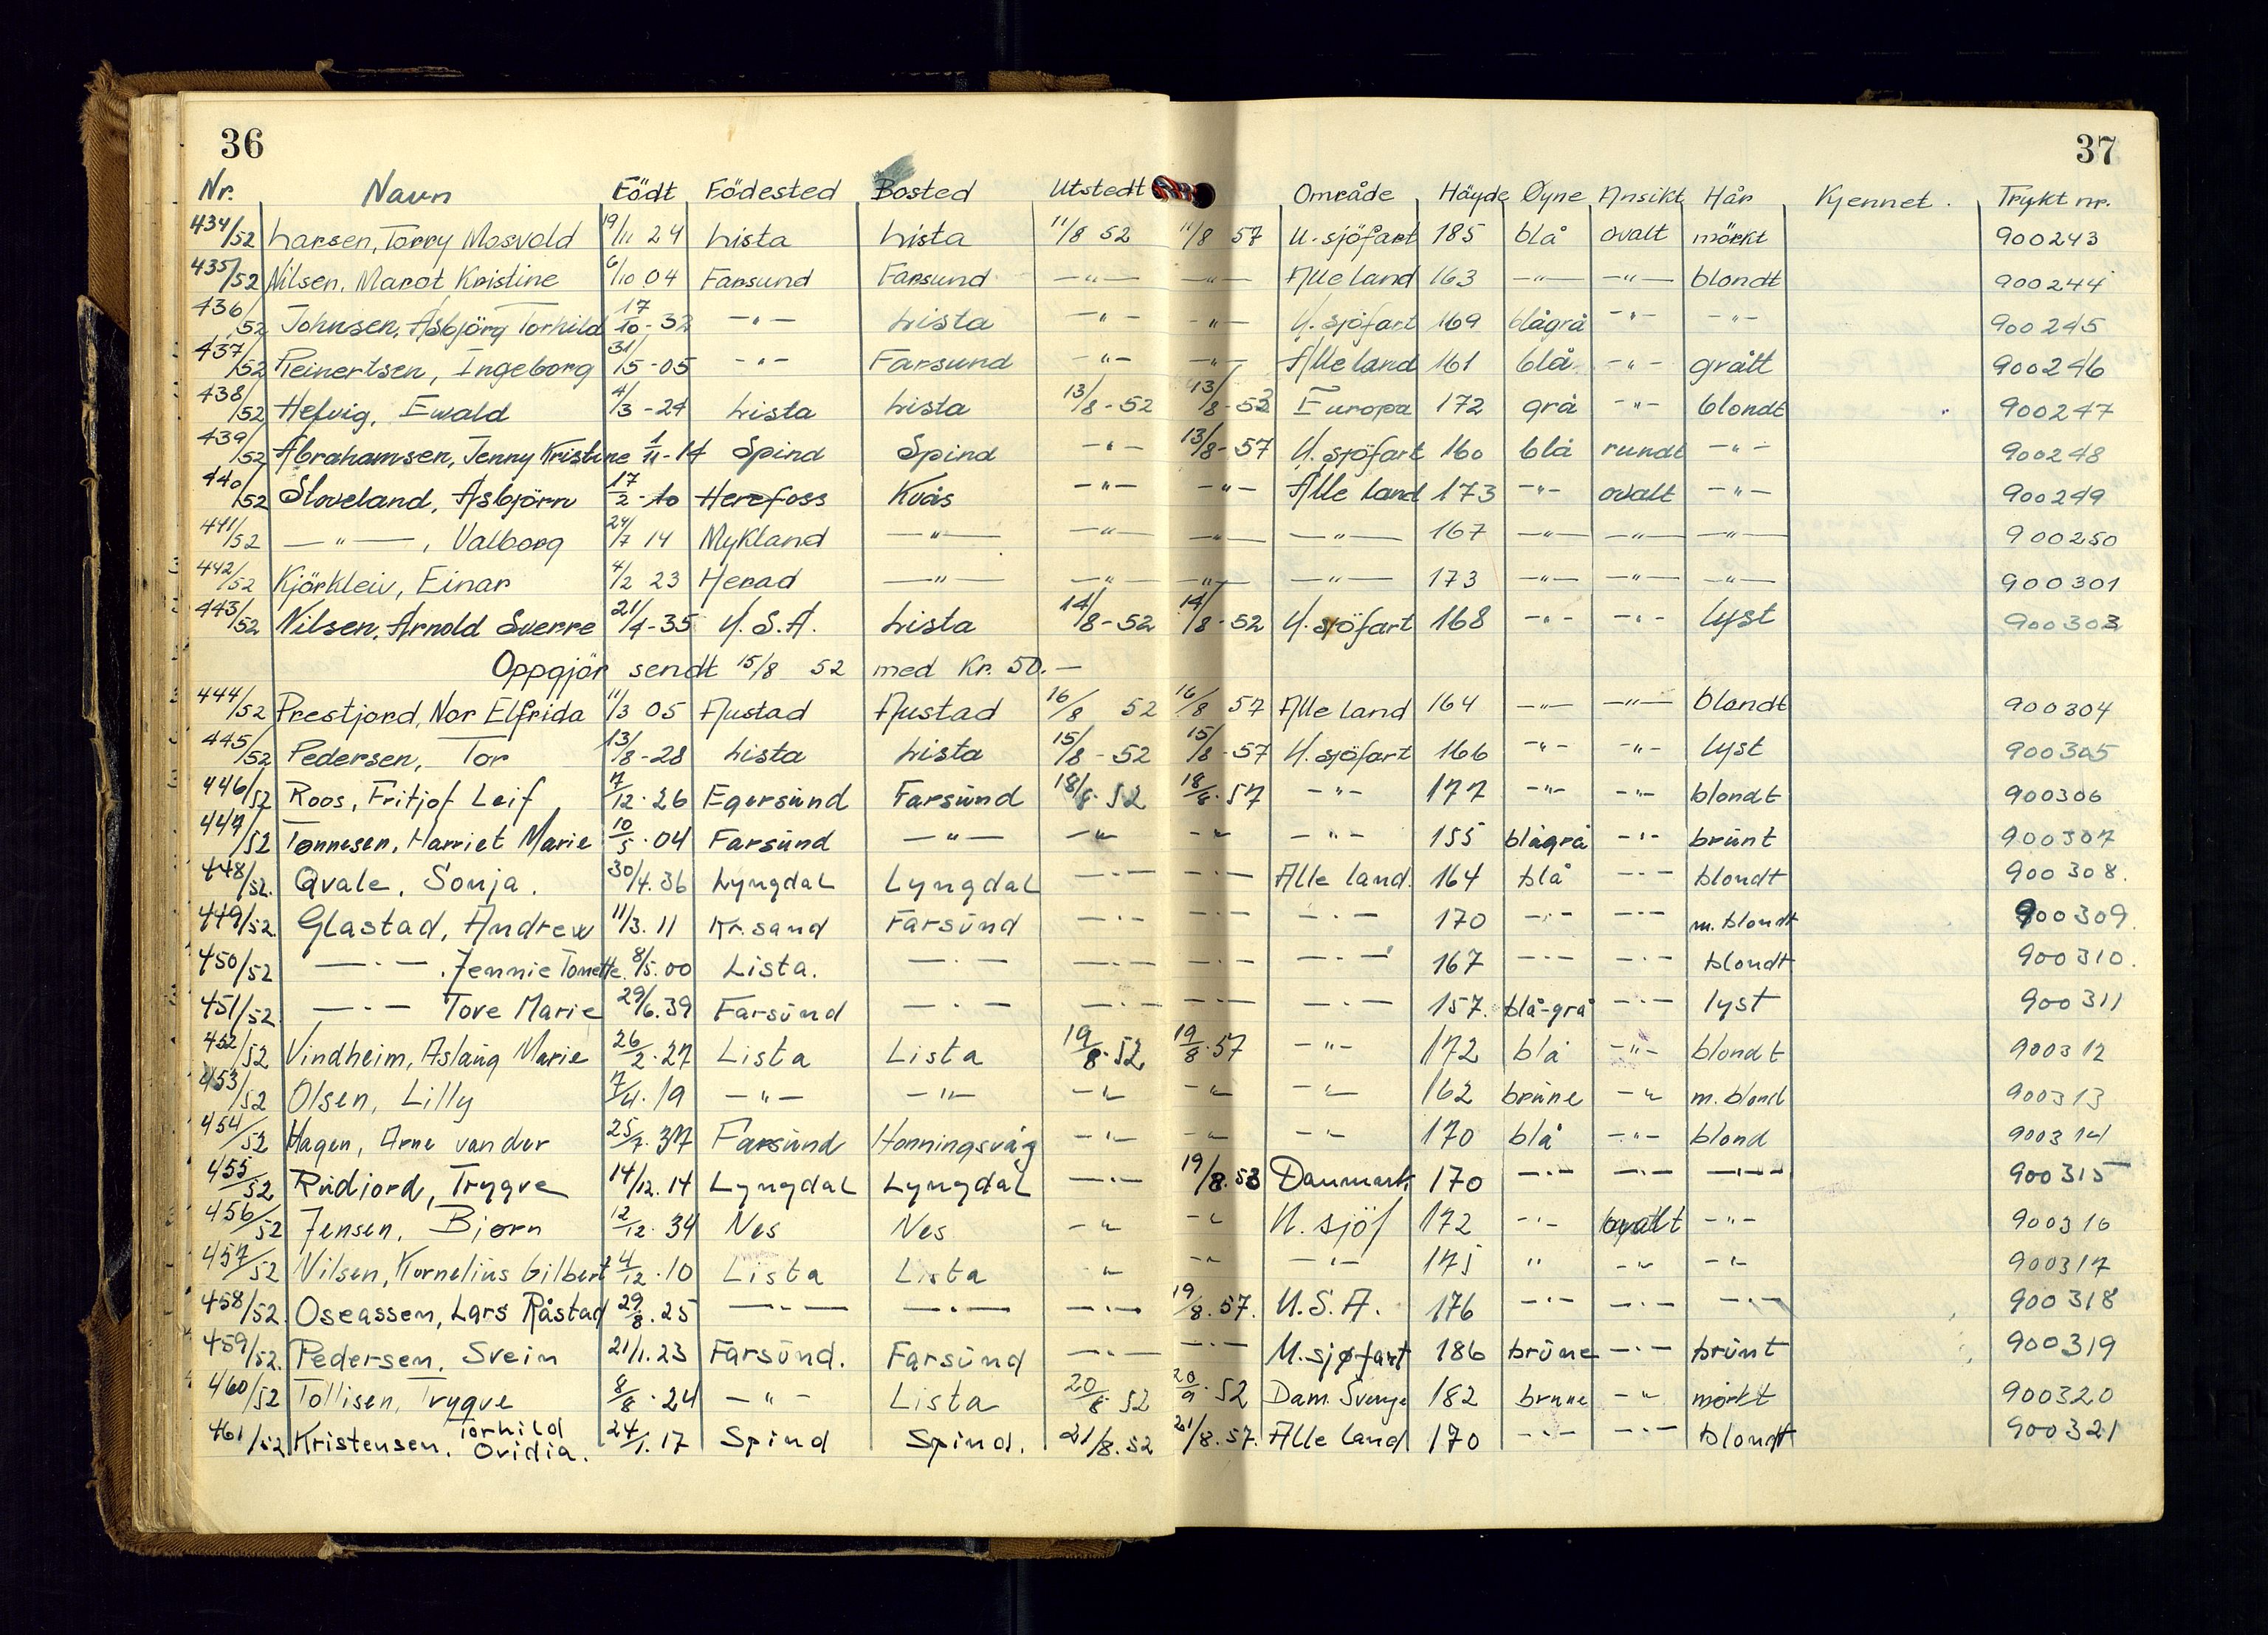 36
37
Nr. Navn Födt Födested Bosted Utstedt Område Høyde Øyne Ansikt Hår Kjennet. Trykt nr.
434/52 Larsen, Torry Mosvold 19/11 24 Lista Lista 11/8 52 11/8 57 U. sjöfart 185 blå ovalt mörkt 900243
435/52 Nilsen, Marot Kristine 6/10 04 Farsund Farsund —"— —"— Alle land 163 —"— —"— blondt 900244
436/52 Johnsen, Asbjörg Torhild 17/10-32 —"— Lista —"— —"— U. sjöfart 169 blågrå —"— —"— 900245
437/52 Reinertsen, Ingeborg 31/5-05 —"— Farsund —"— —"— Alle land 161 blå —"— grått 900246
438/52 Hefvig, Ewald 4/3-24 Lista Lista 13/8-52 13/8-53 Europa 172 grå —"— blondt 900247
439/52 Abrahamsen, Jenny Kristine 1/11-14 Spind Spind —"— 13/8-57 U. sjöfart 160 blå rundt —"— 900248
440/52 Sloveland, Asbjörn 17/2-10 Herefoss Kvås —"— —"— Alle land 173 —"— ovalt —"— 900249
441/52 —"—, Valborg 24/7 14 Mykland —"— —"— —"— —"— 167 —"— —"— —"— 900250
442/52 Kjörkleiv, Einar 4/2 23 Herad —"— —"— —"— —"— 173 —"— —"— —"— 900301
443/52 Nilsen, Arnold Sverre 21/4-35 U.S.A. Lista 14/8-52 14/8-52 U. sjöfart 168 —"— —"— lyst 900303
Oppgjör sendt 15/8 52 med Kr. 50.—
444/52 Prestjord, Nor Elfrida 11/3 05 Austad Austad 16/8 52 16/8 57 Alle land 164 —"— —"— blondt 900304
445/52 Pedersen, Tor 13/8-28 Lista Lista 15/8-52 15/8-57 U. sjöfart 166 —"— —"— lyst 900305
446/52 Roos, Fritjof Leif 7/12.26 Egersund Farsund 18/8.52 18/8.57 —"— 177 —"— —"— blondt 900306
447/52 Tønnesen, Harriet Marie 10/5.04 Farsund —"— —"— —"— —"— 155 blågrå —"— brunt 900307
448/52. Qvale, Sonja. 30/4.36 Lyngdal Lyngdal —"— —"— Alle land. 164 blå —"— blondt 900308.
449/52. Glastad, Andrew 11/3.11 Kr.sand Farsund —"— —"— —"— 170 —"— —"— m. blondt 900309.
450/52 —"—, Jennie Tonette. 8/5.00 Lista. —"— —"— —"— —"— 167 —"— —"— blondt 900310.
451/52. —"— Tove Marie 29/6.39 Farsund —"— —"— —"— —"— 157. blå-grå —"— lyst 900311
452/52 Vindheim, Aslaug Marie 26/2.27 Lista Lista 19/8.52 19/8.57 —"— 172 blå —"— blondt 900312
453/52 Olsen, Lilly 7/4.19 —"— —"— —"— —"— —"— 162 brune —"— m. blond 900313
454/52 Hagen, Arne van der 25/7.37 Farsund Honningsvåg —"— —"— —"— 170 blå —"— blond 900314
455/52 Rudjord, Trygve 14/12.14 Lyngdal Lyngdal —"— 19/8.53 Danmark 170 —"— —"— —"— 900315
456/52 Jensen, Bjørn 12/12.34 Nes Nes —"— —"— U. sjöf 172 —"— ovalt —"— 900316
457/52 Nilsen, Kornelius Gilbert 4/12.10 Lista Lista " —"— —"— 175 " —"— —"— 900317
458/52. Oseassen, Lars Råstad 29/8.25 —"— —"— —"— 19/8.57. U.S.A. 176 —"— —"— —"— 900318
459/52. Pedersen, Svein 21/1.23 Farsund. Farsund —"— —"— U. sjøfart 186 brune —"— brunt 900319
460/52 Tollisen, Trygve 8/8.24 —"— Lista 20/8 52 20/9.52 Dam. Sverige 182 brune —"— mørkt 900320
461/52 Kristensen. Torhild Ovidia. 24/1.17 Spind Spind. 21/8.52 21/8.57. Alle land 170 —"— —"— blondt 900321